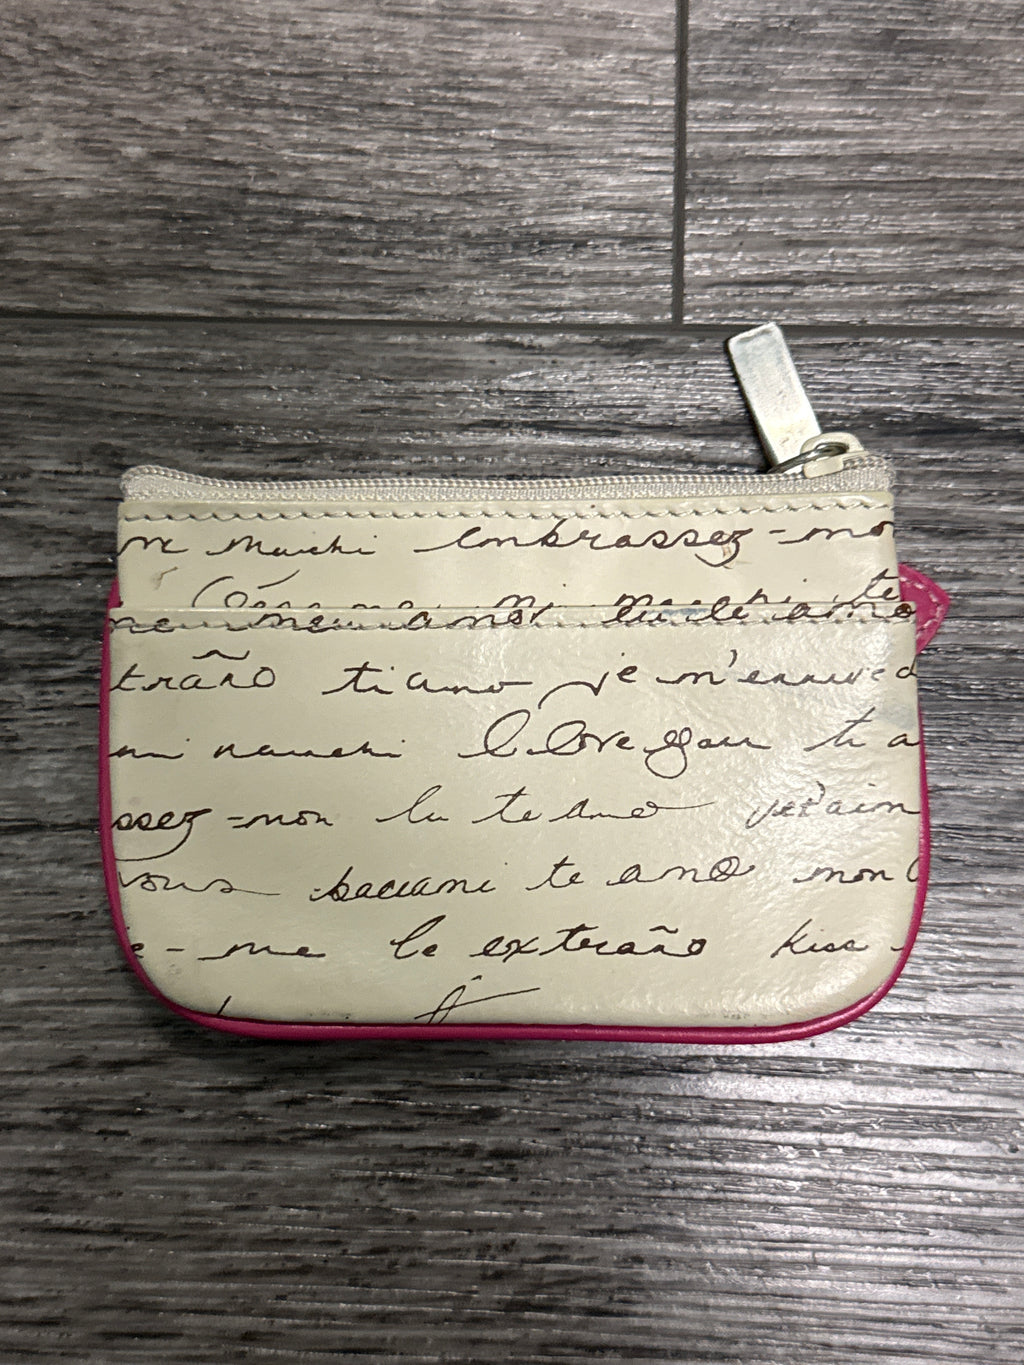 embrassez-mon
me amor te amo
traño ti amo je m'ennuie d
mi manchi I love you ti a
ssez-mon lu te amo je t'aim
vous baciami te amo mon
e-me le extraño kiss